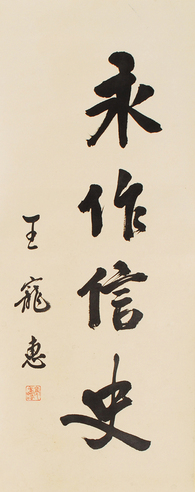 永作信史
王寵惠